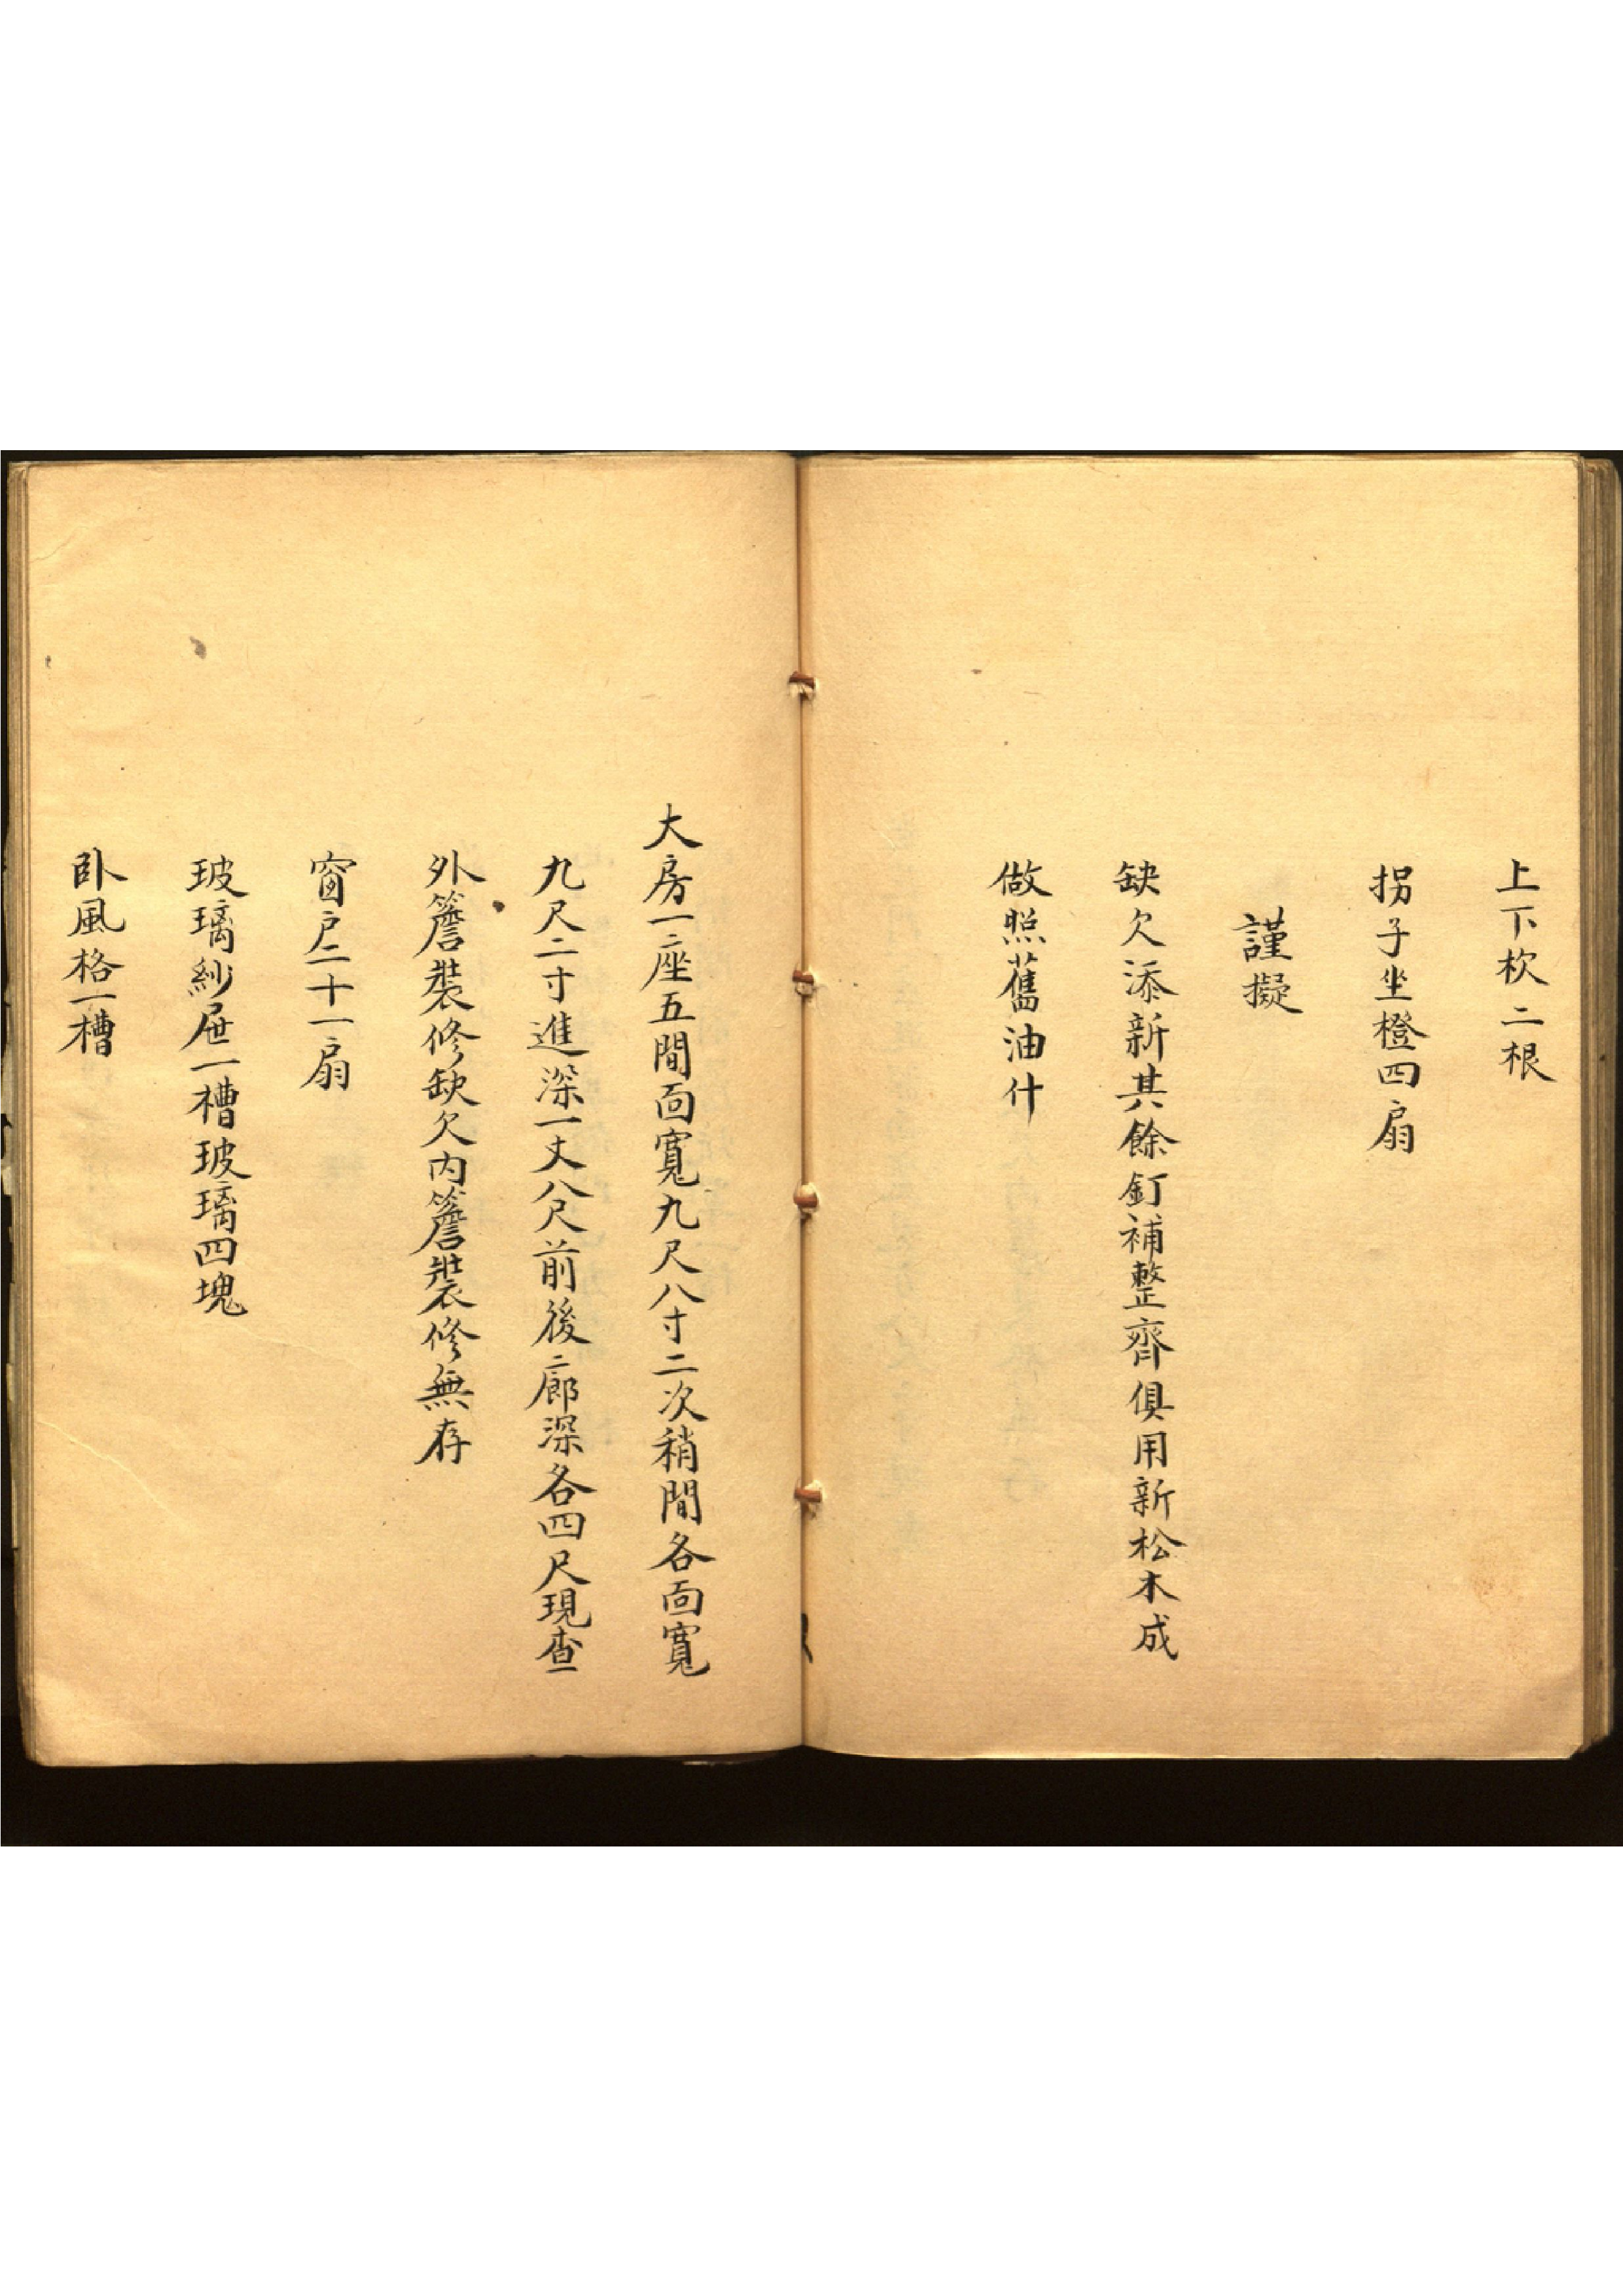 上下枕二根
拐子坐橙四扇
謹擬
缺欠添新其餘釘補整齊俱用新松木成
做照舊油什
大房一座五間面寬九尺八寸二次稍間各面寬
九尺二寸進深一丈八尺前後廊深各四尺現查
外簷裝修缺欠内簷裝修無存
窗戶二十一扇
玻璃紗屉一槽玻璃四塊
卧風格一槽